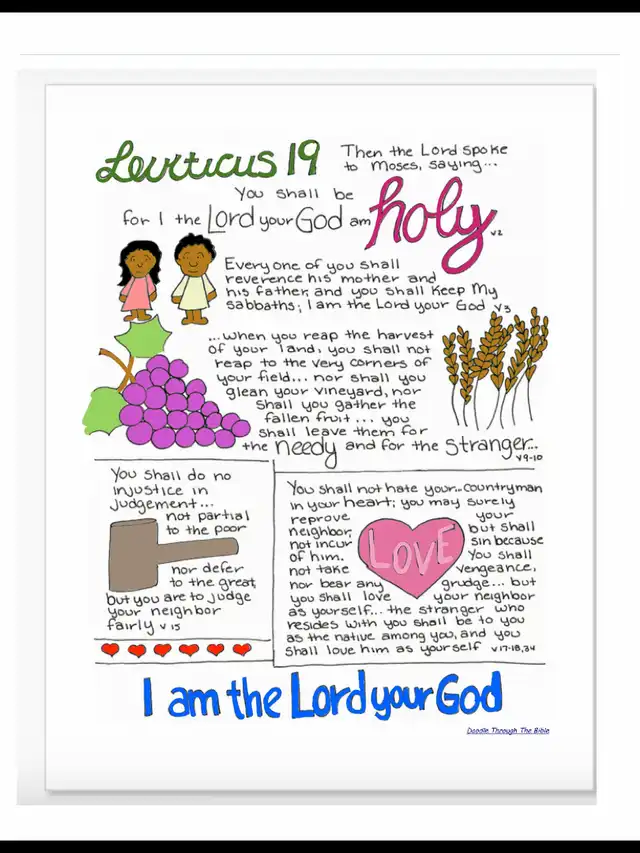 Leviticus 19
Then the Lord spoke
to Moses, saying...
You shall be
for I the Lord your God am
holy
v2
Every one of you shall
reverence his mother and
his father, and you shall keep My
sabbaths; I am the Lord your God v3
...when you reap the harvest
of your land, you shall not
reap to the very corners of
your field... nor shall you
glean your vineyard, nor
shall you gather the
fallen fruit... you
shall leave them for
the needy and for the stranger...
v9-10
You shall do no
injustice in
judgement...
not partial
to the poor
nor defer
to the great,
but you are to judge
your neighbor
fairly v 15
You shall not hate your...countryman
in your heart; you may surely
reprove your
neighbor, but shall
not incur sin because
of him. You shall
not take vengeance,
nor bear any grudge... but
you shall love your neighbor
as yourself... the stranger who
resides with you shall be to you
as the native among you, and you
shall love him as yourself v.17-18,34
LOVE
I am the Lord your God
Doodle Through The Bible